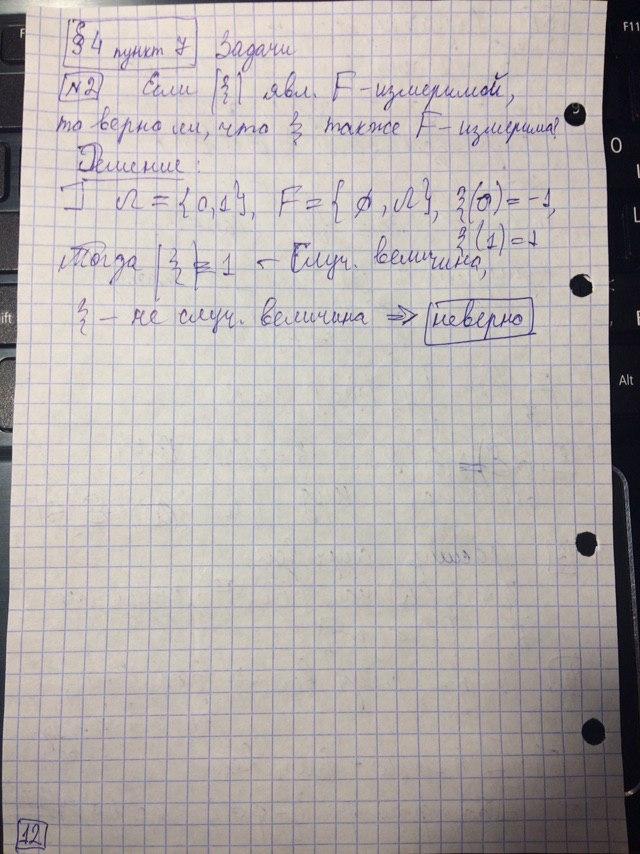 §4 пункт 7 Задачи
№2 Если |ξ| явл. F-измеримой,
то верно ли, что ξ также F-измерима?
Решение:
] Ω = {0,1}, F = {∅, Ω}, ξ(0) = -1,
ξ(1) = 1
Тогда |ξ| ≡ 1 - Случ. величина,
ξ - не случ. величина ⇒ неверно
12